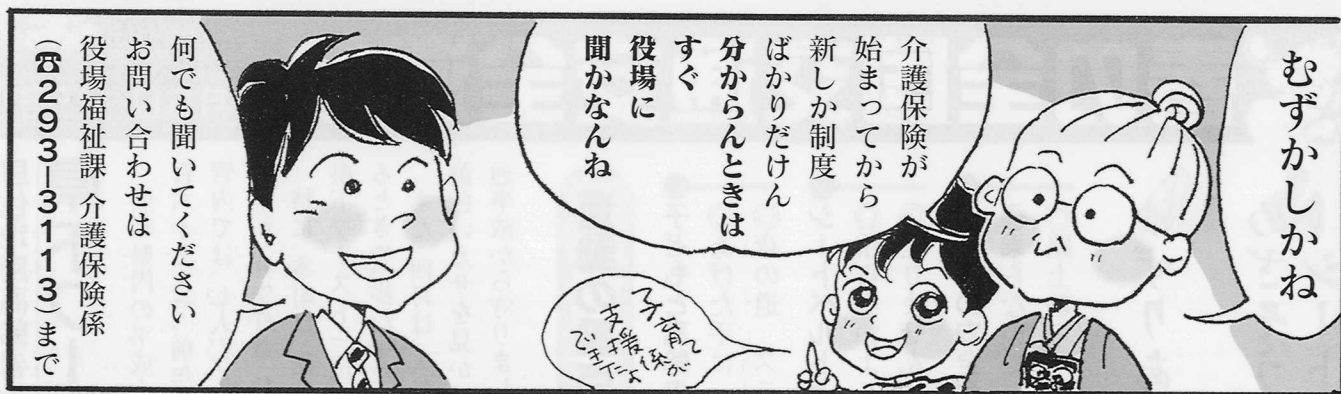 むずかしかね
介護保険が
始まってから
新しか制度
ばかりだけん
分からんときは
すぐ
役場に
聞かなんね
子育て
支援係が
できたよ
何でも聞いてください
お問い合わせは
役場福祉課 介護保険係
(☎293−3113)まで